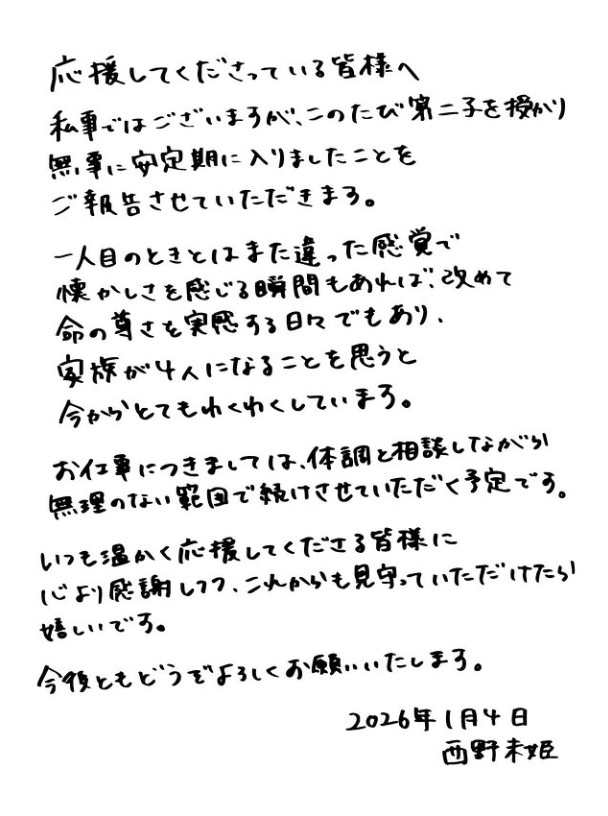 応援してくださっている皆様へ
私事ではございますが、このたび第二子を授かり
無事に安定期に入りましたことを
ご報告させていただきます。
一人目のときとはまた違った感覚で
懐かしさを感じる瞬間もあれば、改めて
命の尊さを実感する日々でもあり、
家族が4人になることを思うと
今からとてもわくわくしています。
お仕事につきましては、体調と相談しながら
無理のない範囲で続けさせていただく予定です。
いつも温かく応援してくださる皆様に
心より感謝しつつ、これからも見守っていただけたら
嬉しいです。
今後ともどうぞよろしくお願いいたします。
2026年1月4日
西野未姫